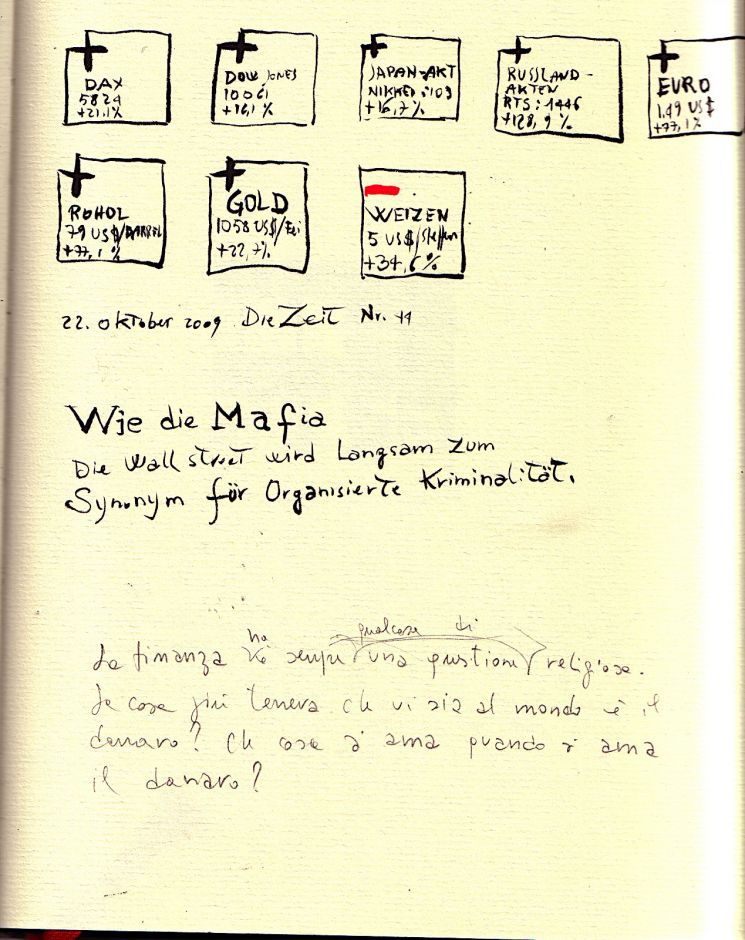 DAX
5824
+21,1%
DOW JONES
10061
+16,1%
JAPAN-AKT
NIKKEI:109
+16,7%
RUSSLAND-
AKTEN
RTS: 1446
+128,9%
EURO
1,49 US$
+77,1%
ROHOL
79 US$/BARREL
+77,1%
GOLD
1058 US$/
+22,7%
WEIZEN
5 US$/
+34,6%
22. Oktober 2009 Die Zeit Nr. 44
Wie die Mafia
Die Wall street wird Langsam zum
Synonym für Organisierte Kriminalität.
ha qualcosa di
La finanza è sempre una questione religiosa.
La cosa più tenera che vi sia al mondo è il
danaro? Che cosa si ama quando si ama
il danaro?